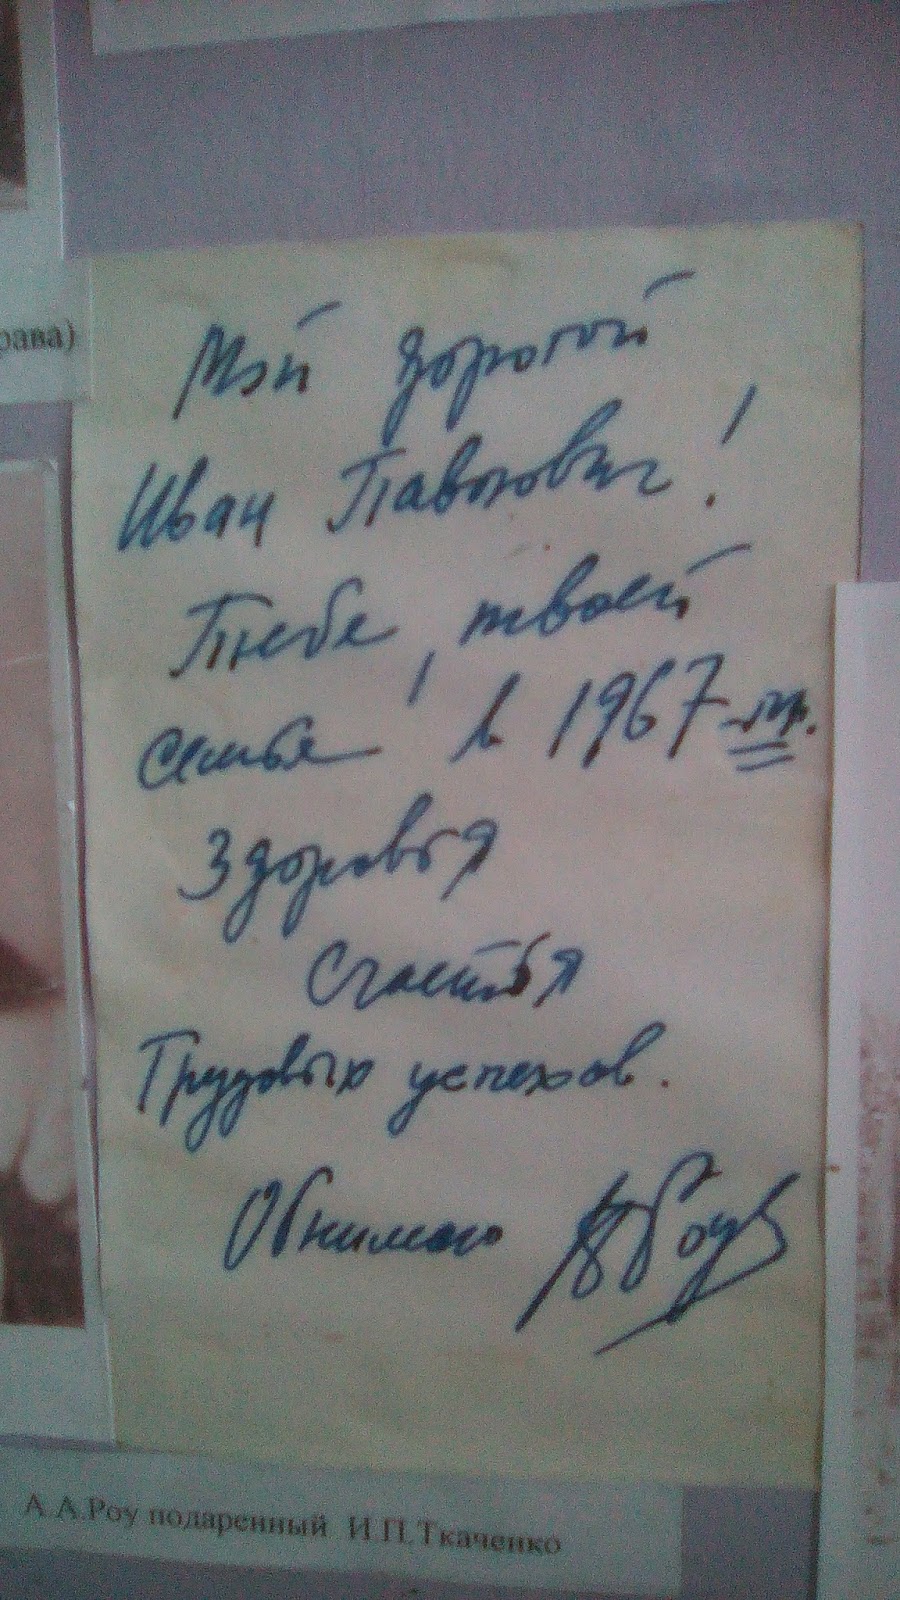 рава)
Мой дорогой
Иван Павлович!
Тебе, твоей
семье в 1967-
Здоровья
Счастья
Трудовых успехов.
Обнимаю АРоу
А.А.Роу подаренный И.П.Ткаченко